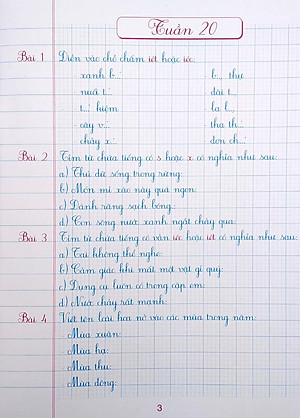 Tuần 20
Bài 1 Điền vào chỗ chấm iêt hoặc iêc:
xanh b... b... thự
nuối t... dài t...
t... kiệm la l...
cây v... tha th...
chảy x... đơn ch...
Bài 2 Tìm từ chứa tiếng có s hoặc x có nghĩa như sau:
a) Thú dữ sống trong rừng:
b) Món mì xào này quá ngon:
c) Dành răng sạch bóng:
d) Con sông nước xanh ngắt chảy qua:
Bài 3 Tìm từ chứa tiếng có vần iêc hoặc iêt có nghĩa như sau:
a) Tai không thể nghe:
b) Cảm giác khi mất một vật gì quý:
c) Dụng cụ luôn có trong cặp em:
d) Nước chảy rất mạnh:
Bài 4 Viết tên loài hoa nở vào các mùa trong năm:
Mùa xuân:
Mùa hạ:
Mùa thu:
Mùa đông:
3